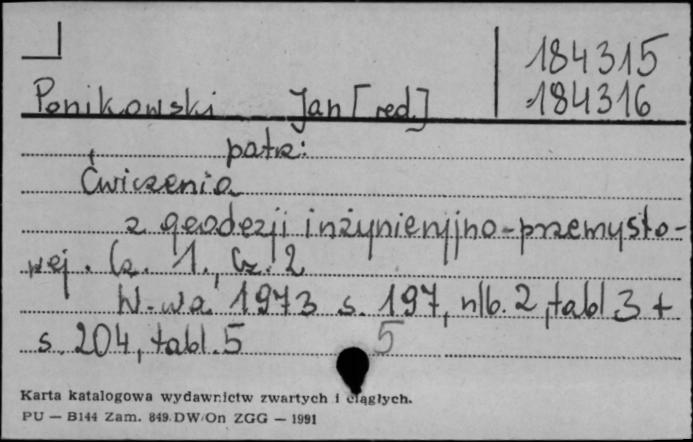 184315
184316
Ponikowski Jan [red.]
patrz:
Ćwiczenia
z geodezji inżynieryjno-przemysło-
wej. Cz. 1., Cz. 2
W-wa 1973 s. 197, nlb. 2, tabl 3 +
s. 204, tabl. 5 5
Karta katalogowa wydawnictw zwartych i ciągłych.
PU — B144 Zam. 849/DW/On ZGG — 1991